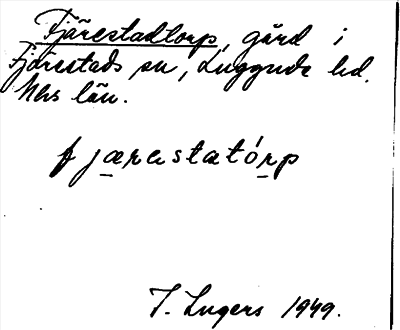 Fjärestadtorp, gård i
Fjärestads sn, Luggude hd.
Mhs län.
fjærastatórp
J. Lugers 1949.